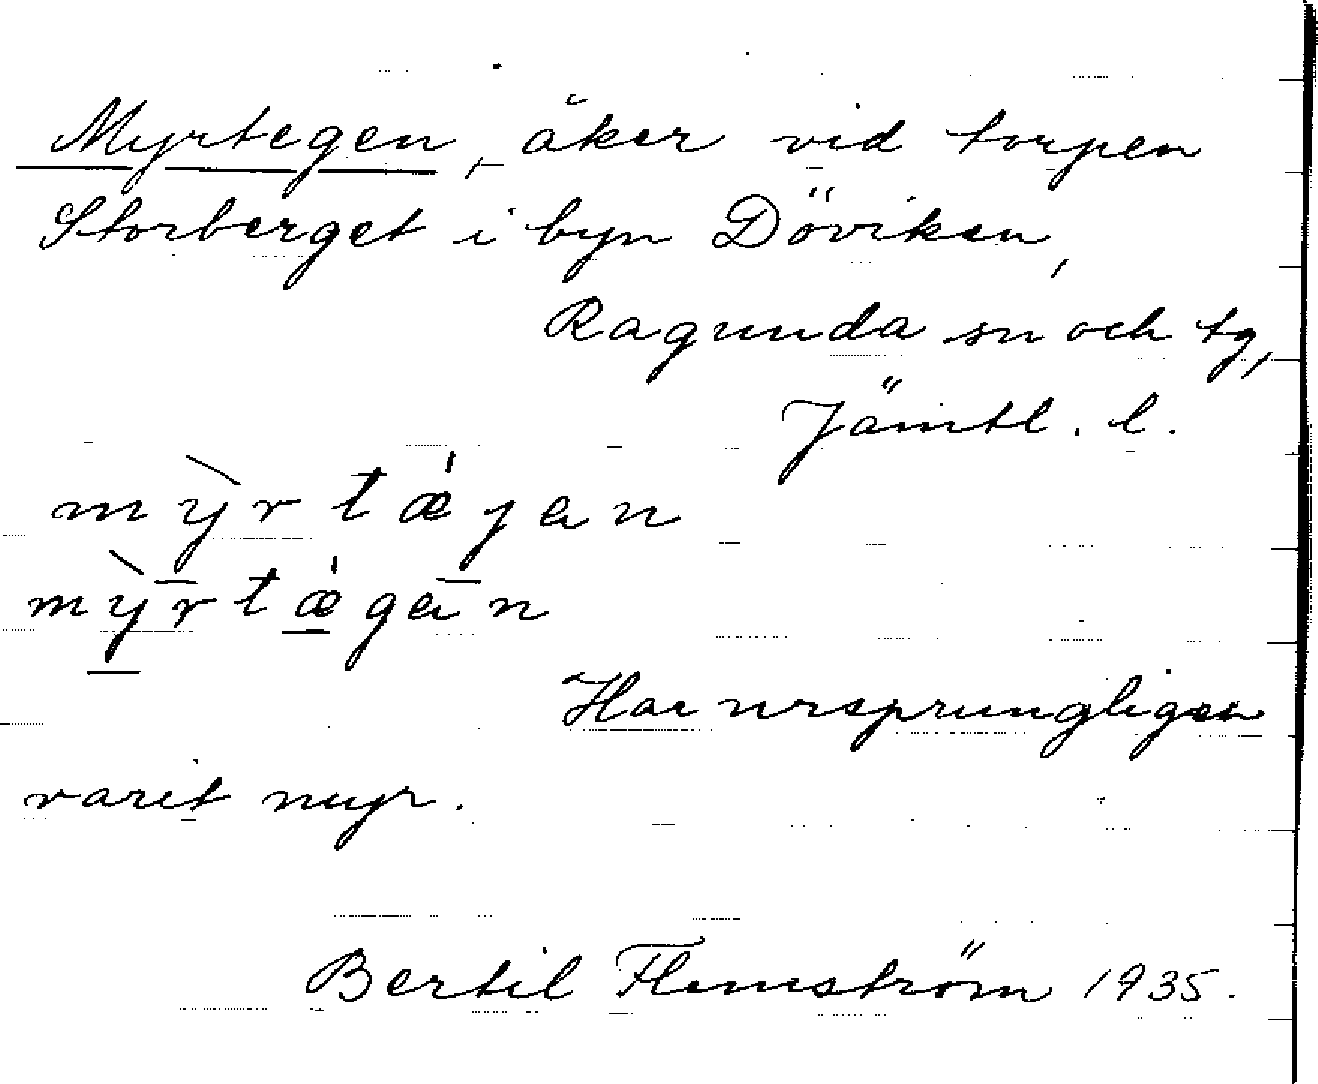 Myrtegen, åker vid torpen
Storberget i byn Döviken,
Ragunda sn och tg,
Jämtl. l.
mỳrtǽgan
mỳrtǽgan
Har ursprungligen
varit myr.
Bertil Flemström 1935.